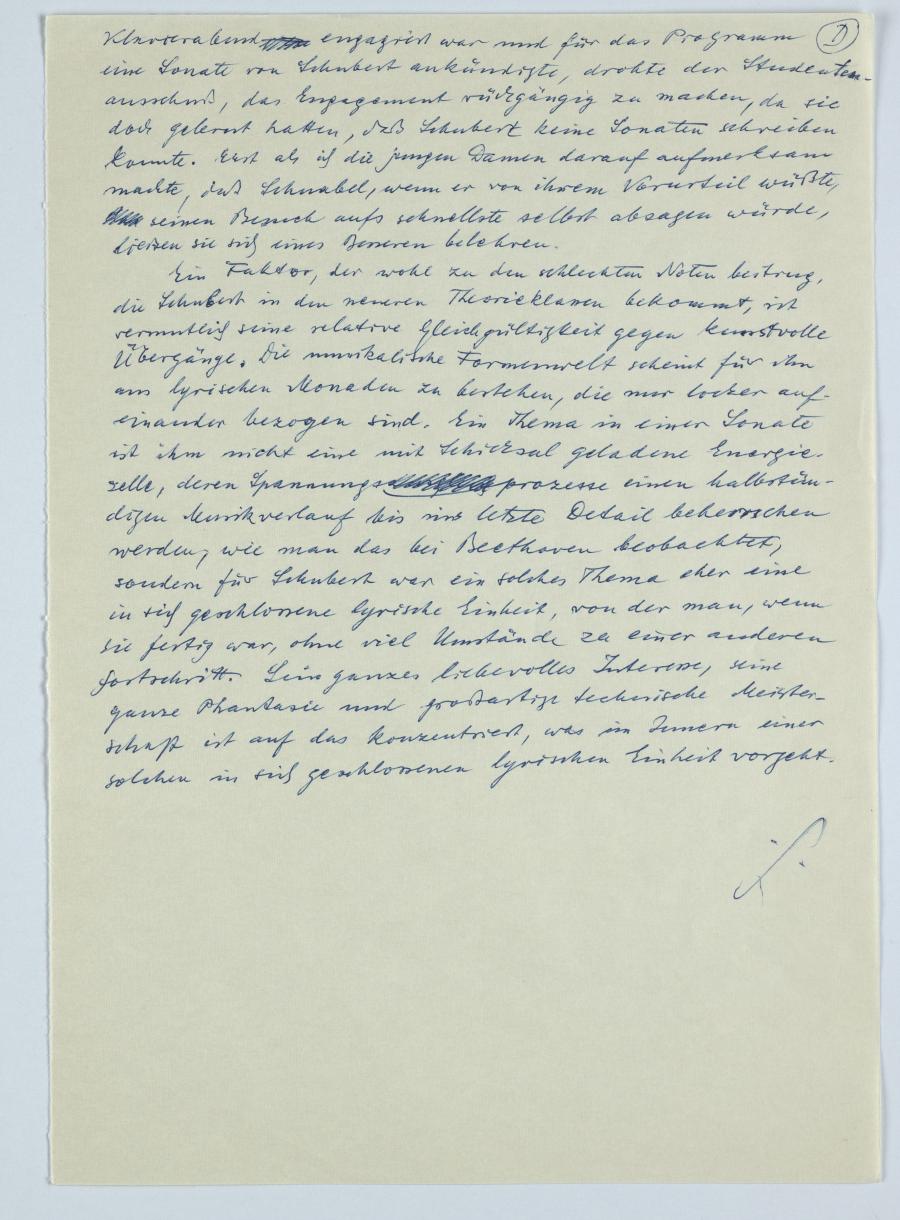 Klavierabend engagiert war und für das Programm
eine Sonate von Schubert ankündigte, drohte der Studenten-
ausschuß, das Engagement rückgängig zu machen, da sie
doch gelernt hatten, daß Schubert keine Sonaten schreiben
konnte. Erst als ich die jungen Damen darauf aufmerksam
machte, daß Schnabel, wenn er von ihrem Vorurteil wüßte,
seinen Besuch aufs schnellste selbst absagen würde,
liessen sie sich eines Besseren belehren.
Ein Faktor, der wohl zu den schlechten Noten beitrug,
die Schubert in den neueren Theorieklassen bekommt, ist
vermutlich seine relative Gleichgültigkeit gegen kunstvolle
Übergänge. Die musikalische Formenwelt scheint für ihn
aus lyrischen Monaden zu bestehen, die nur locker auf-
einander bezogen sind. Ein Thema in einer Sonate
ist ihm nicht eine mit Schicksal geladene Energie-
zelle, deren Spannungsprozesse einen halbstün-
digen Musikverlauf bis ins letzte Detail beherrschen
werden, wie man das bei Beethoven beobachtet,
sondern für Schubert war ein solches Thema eher eine
in sich geschlossene lyrische Einheit, von der man, wenn
sie fertig war, ohne viel Umstände zu einer anderen
fortschritt. Sein ganzes liebevolles Interesse, seine
ganze Phantasie und großartige technische Meister-
schaft ist auf das konzentriert, was im Innern einer
solchen in sich geschlossenen lyrischen Einheit vorgeht.